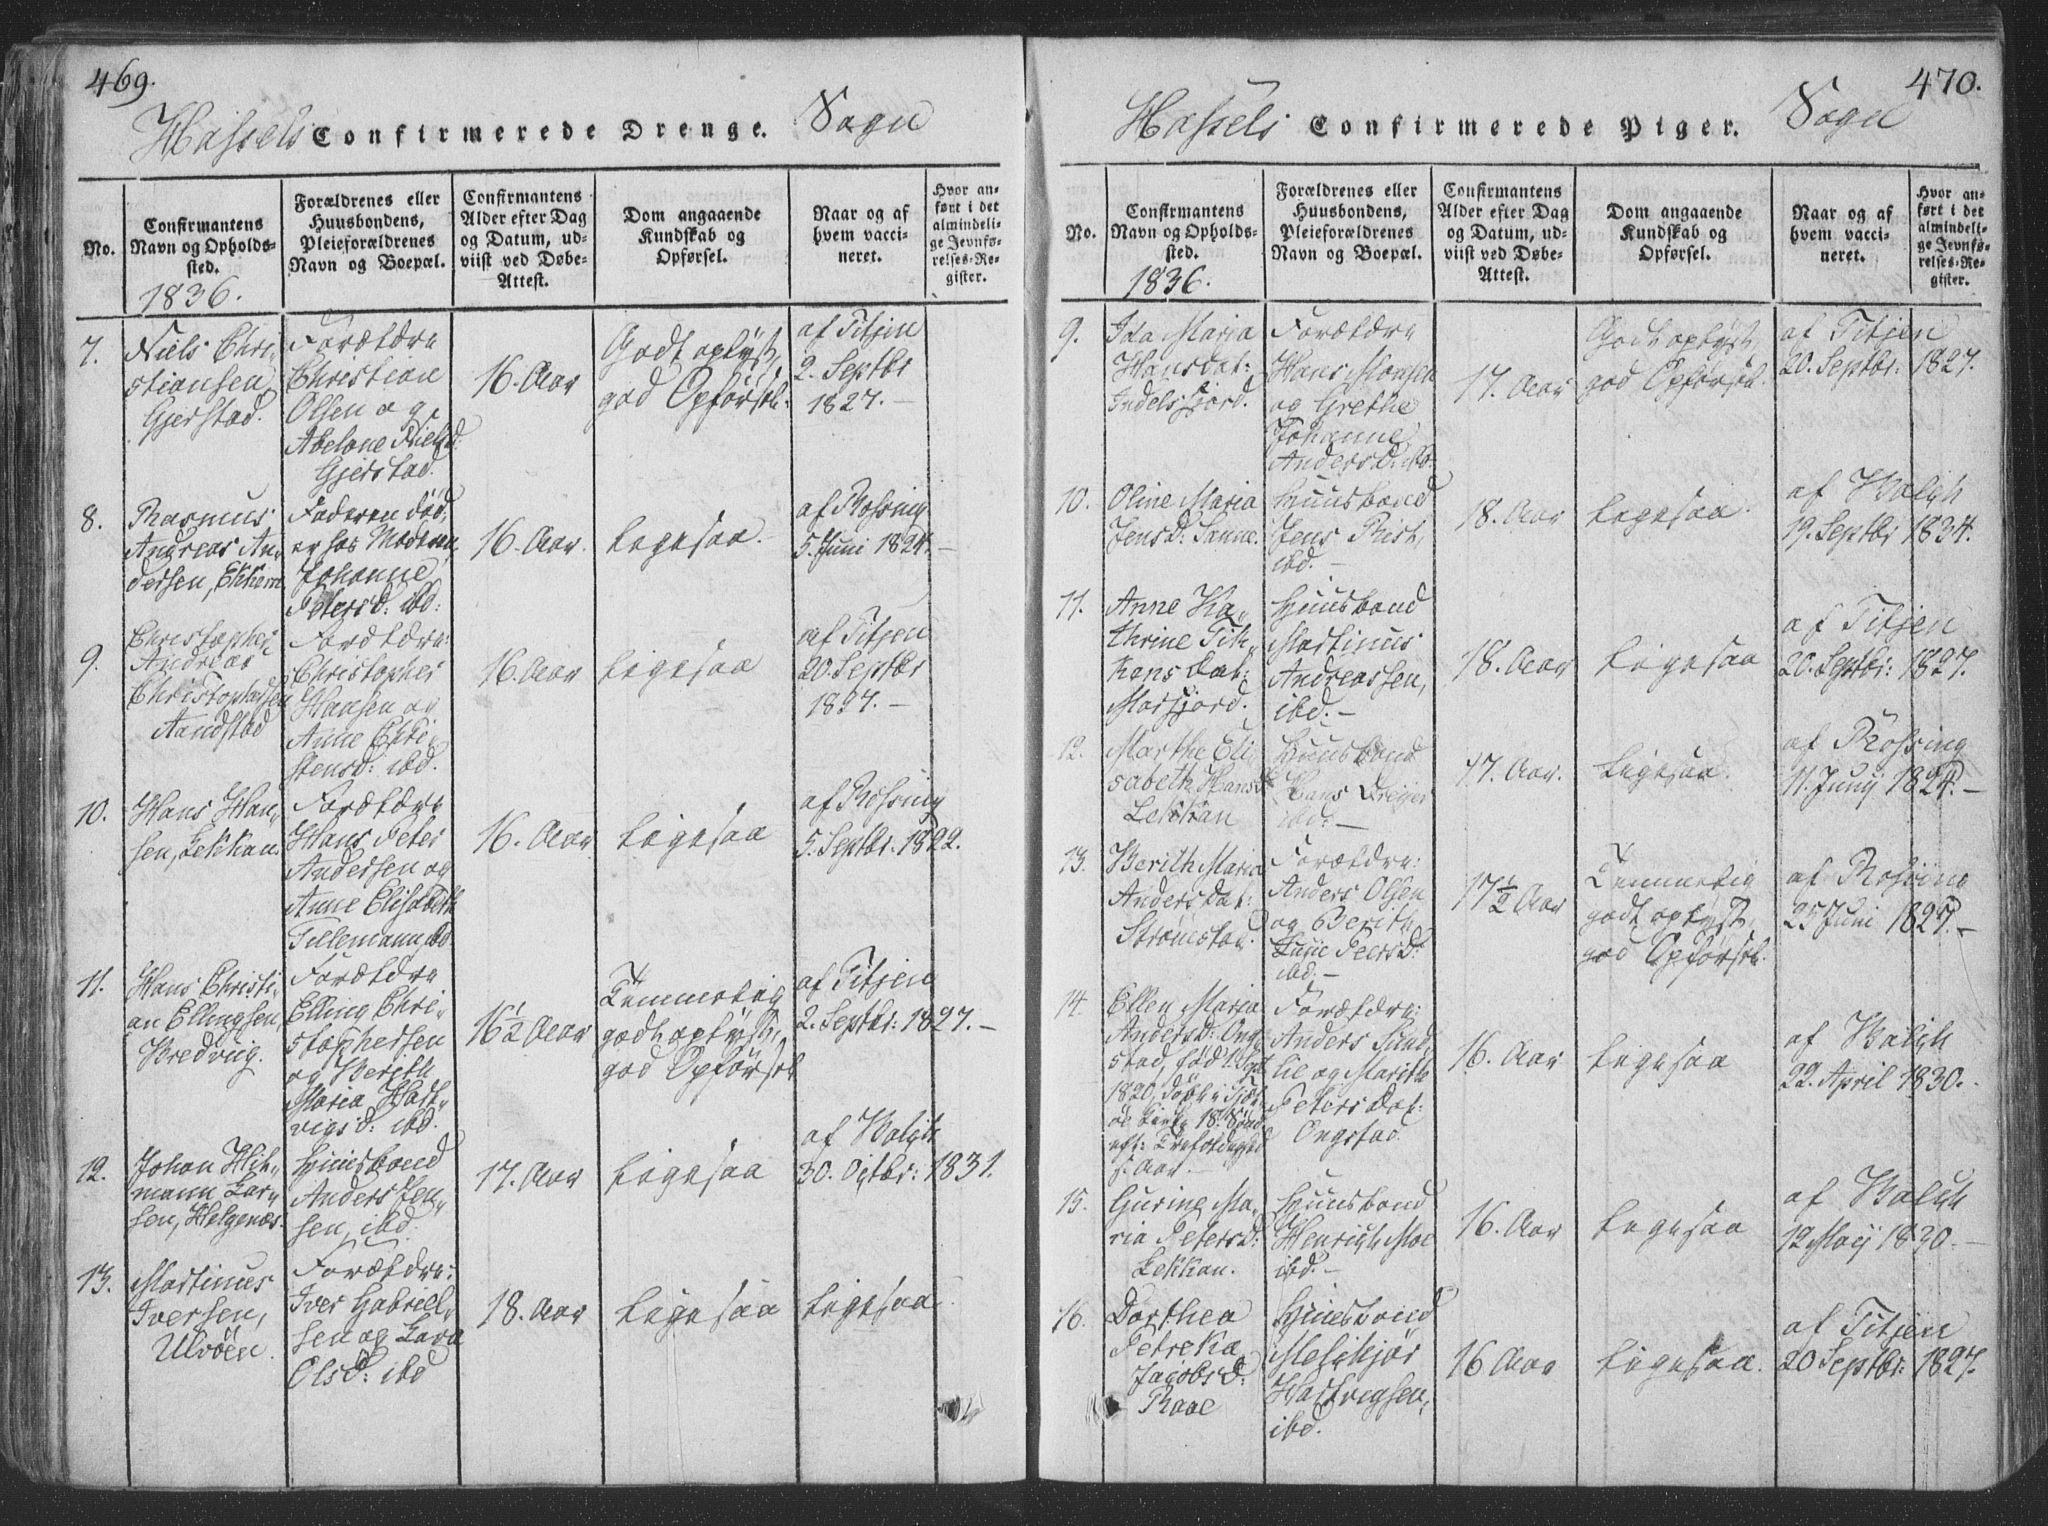 469.
Hassels Confirmerede Drenge. Sogn
No.
Confirmantens
Navn og Opholds-
sted.
1836.
Forældrenes eller
Huusbondens,
Pleieforældrenes
Navn og Boepæl.
Confirmantens
Alder efter Dag
og Datum, ud-
viist ved Døbe-
Attest.
Dom angaaende
Kundskab og
Opførsel.
Naar og af
hvem vacci-
neret.
Hvor an-
ført i det
almindeli-
ge Jevnfø-
relses-Re-
gister.
7.
Niels Chri-
stiansen,
Gjerstad.
Forældre
Christian
Olsen og
Abelone Nielsd:
Gjerstad.
16. Aar
Godt oplyst,
god Opførsel.
af Titjen
2. Septbr
1827. –
8.
Rasmus
Andreas An-
dersen,
Faderen død,
er hos Moderen,
Johanne
Petersd: ibd:
16. Aar.
Ligesaa.
af Rossing
5. Juni 1824. –
9.
Christopher
Andreas
Christophersen
Aandstad
Forældre:
Christopher
Hansen og
Anne Chri-
stensd: ibd.
16. Aar
Ligesaa
af Titjen
20. Septbr
1827. –
10.
Hans Han-
sen, Lekkan.
Forældre
Hans Peter
Andersen og
Anne Elisabeth
Tillemann, ibd.
16. Aar
Ligesaa
af Rossing
5. Septbr. 1822.
11.
Hans Christi-
an Ellingsen,
Bredvig.
Forældre
Elling Chri-
stophersen
og Berith
Maria Hart-
vigsd: ibd.
16½ Aar
Temmelig
godt oplyst,
god Opførsel
af Titjen
2. Septbr: 1827. –
12.
Johan Hil-
mann Lar-
sen, Helgenæs.
Huusbond
Anders Jen-
sen, ibd:
17. Aar
Ligesaa
af Walch
30. Octbr: 1831.
13.
Martinus
Iversen,
Ulvöen.
Forældre:
Iver Gabriel-
sen og Lava
Olsd: ibd
18. Aar
Ligesaa
Ligesaa.
470.
Hassels Confirmerede Piger. Sogn
No.
Confirmantens
Navn og Opholds-
sted.
1836.
Forældrenes eller
Huusbondens,
Pleieforældrenes
Navn og Boepæl.
Confirmantens
Alder efter Dag
og Datum, ud-
viist ved Døbe-
Attest.
Dom angaaende
Kundskab og
Opførsel.
Naar og af
hvem vacci-
neret.
Hvor an-
ført i det
almindeli-
ge Jevnfø-
relses-Re-
gister.
9.
Ida Maria
Hansdat:
Indelsfjord.
Forældre
Hans Monsen
og Grethe
Johanne
Andersd: ibd:
17. Aar
Godt oplyst,
god Opførsel.
af Titjen
20. Septbr: 1827.
10.
Oline Maria
Jensd: Sanne.
Huusbond
Jens Rist,
ibd. –
18. Aar
Ligesaa.
af Walch
19. Septbr 1834.
11.
Anne Ka-
thrine Tik-
kensdat:
Morfjord.
Huusbond
Martinus
Andreassen,
ibd. –
18. Aar
Ligesaa
af Titjen
20. Septbr: 1827.
12.
Marthe Eli-
sabeth Hansd
Lekkan
Huusbond
Hans Dreijer
ibd: –
17. Aar.
Ligesaa.
af Rossing
11. Junij 1824. –
13.
Berith Maria
Andersdat:
Strömstad.
Forældre:
Anders Olsen
og Berith
Lucie Peersd:
ibd: –
17½ Aar
Temmelig
godt oplyst,
god Opførsel.
af Rossing
25 Juni 1827. –
14.
Ellen Maria
Andersd: Ong-
stad, fød
1820, döbt i
Forældre:
Anders Sund-
lie og Marith
Petersdat:
Ongstad.
16. Aar
Ligesaa
af Walch
22. April 1830.
15.
Gurine Ma-
ria Petersd:
Lekkan.
Huusbond
Henrich Moe
ibd. –
16. Aar
Ligesaa
af Walch
12 Maij 1830. –
16.
Dorthea
Petreka
Jacobsd:
Raae
Huusbond
Melchjör
Hartvigsen,
ibd.
16 Aar
Ligesaa.
af Titjen
20 Septbr: 1827.